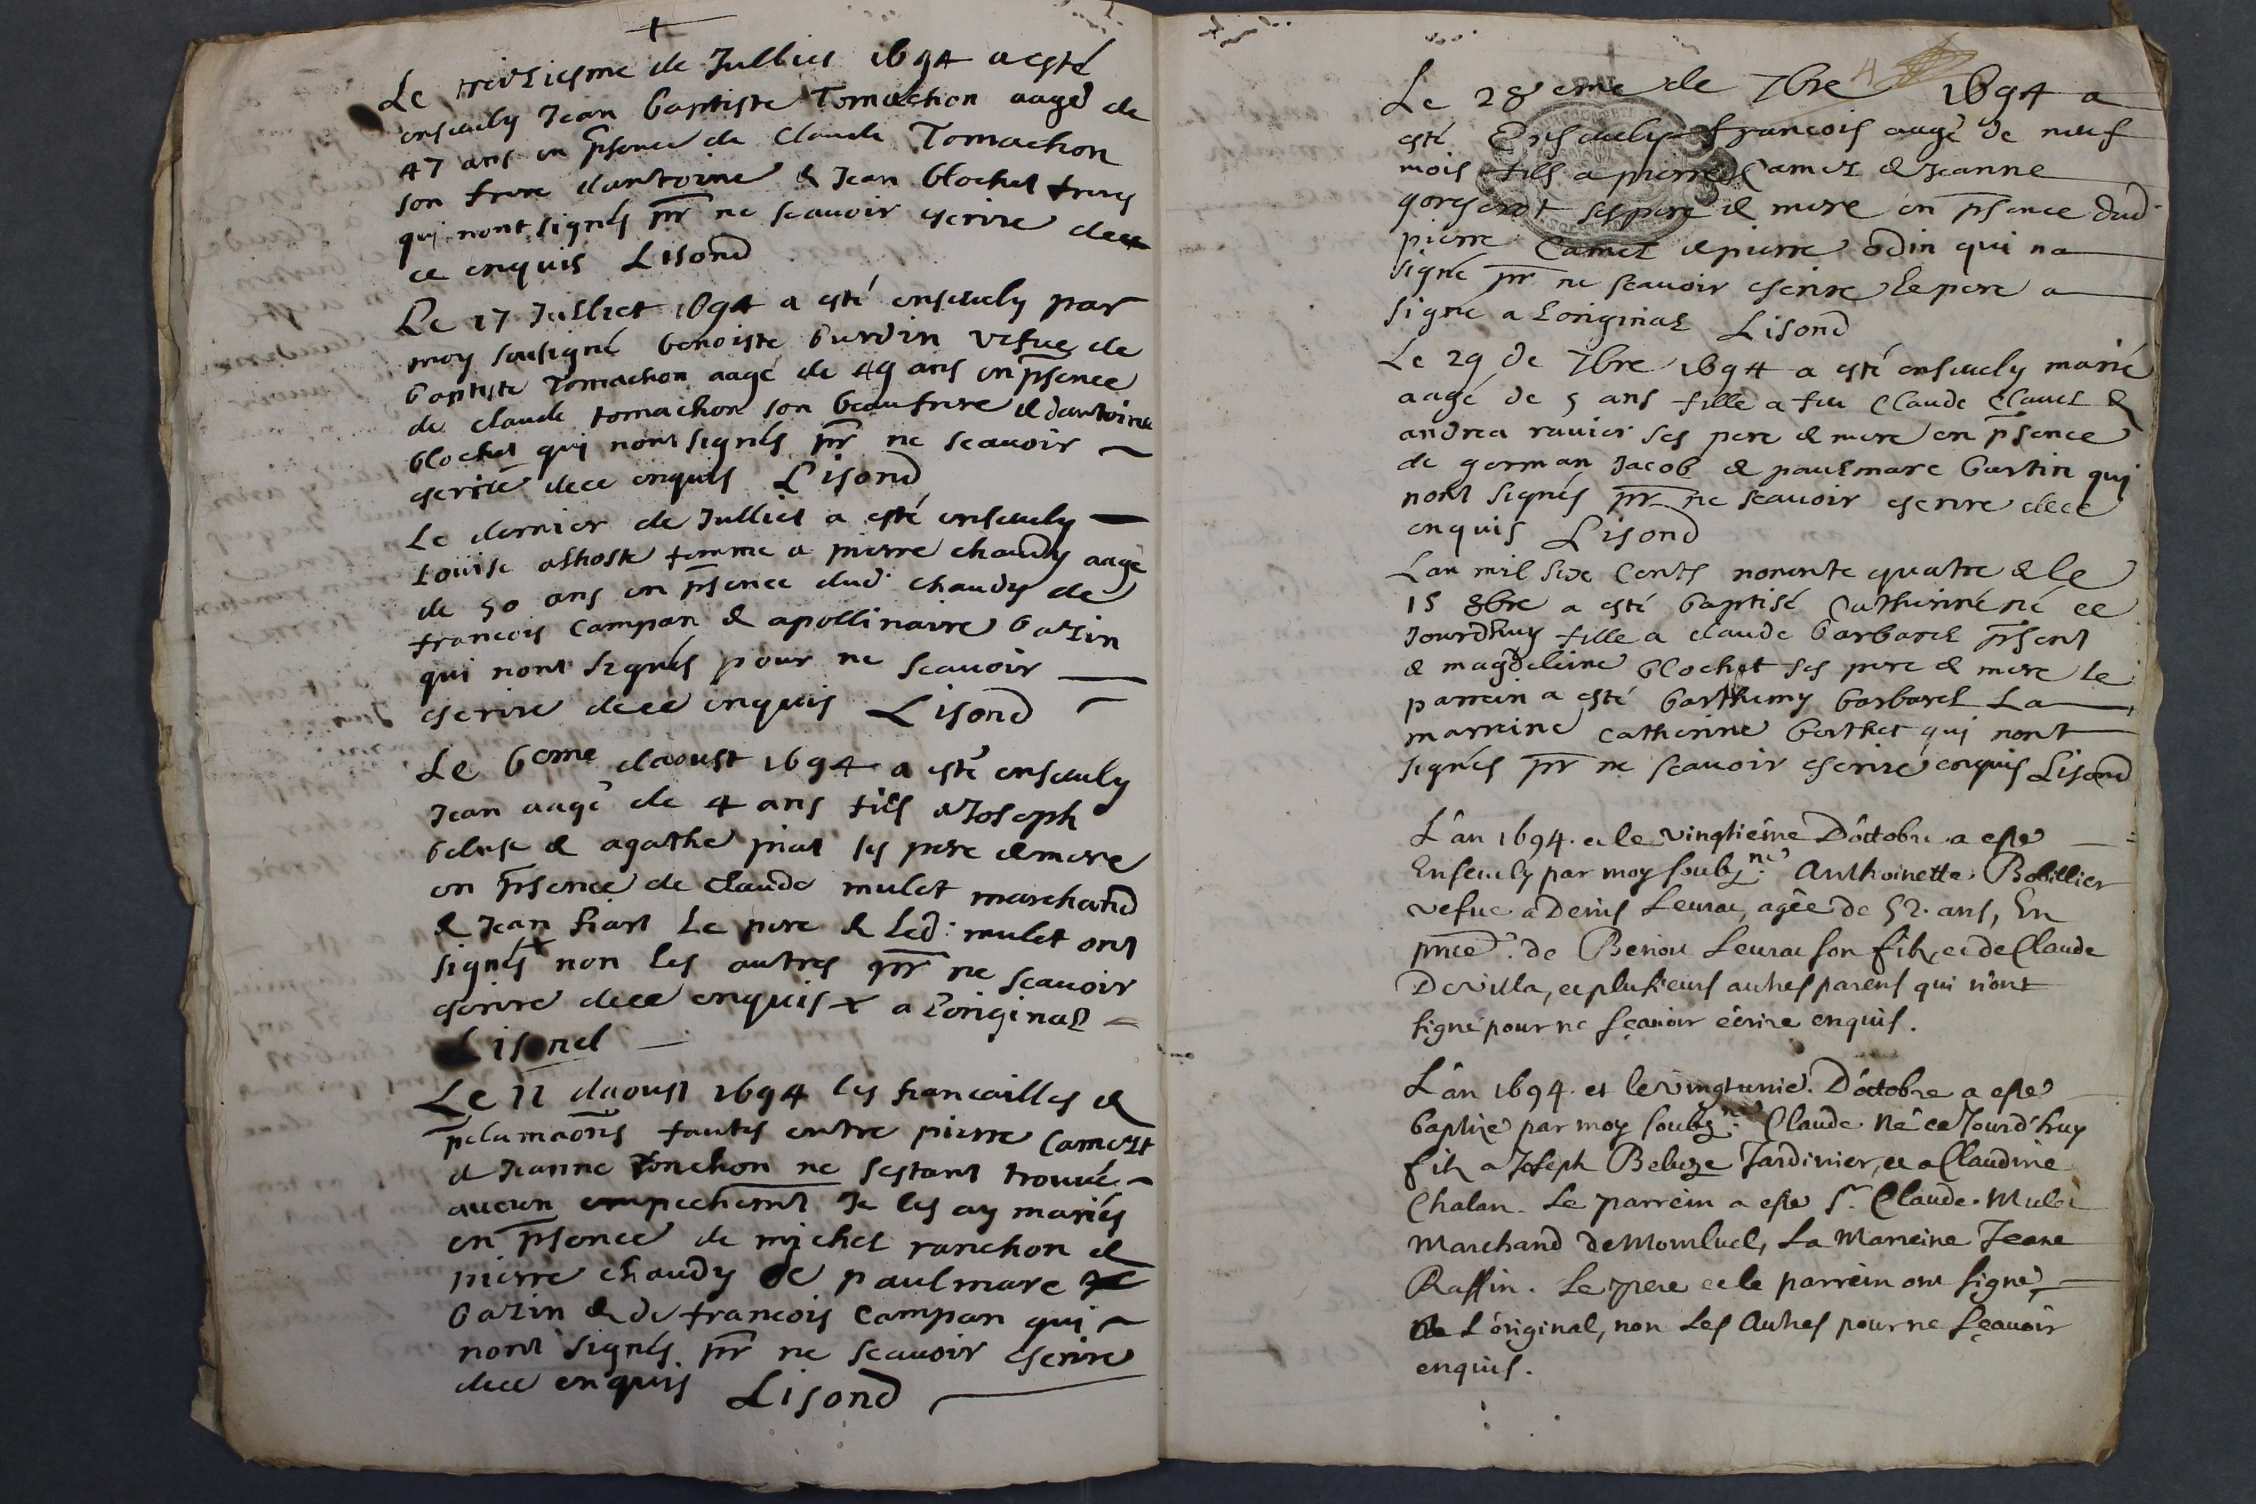 Le treiziesme de Julliet 1694 a esté
ensevely Jean baptiste Tomachon aagé de
47 ans en psence de Claude Tomachon
son frere dantoine & Jean blochet freres
qui nont signés pr ne scavoir escrire dece
ce enquis Lisond
Le 17 Julliet 1694 a esté ensevely par
moy sousigné benoiste burdin vefue de
baptiste Tomachon aagé de 49 ans en psence
de claude tomachon son beaufrere & dantoine
blochet qui nont signés pr ne scavoir
escrire dece enquis Lisond
Le dernier de Julliet a esté ensevely
Louise alhoste femme a pierre chaudy aagé
de 50 ans en psence dud. chaudy de
francois Campan & apollinaire bazin
qui nont signés pour ne scavoir
escrire dece enquis Lisond
Le 6eme daoust 1694 a esté ensevely
Jean aagé de 4 ans fils a Joseph
beluse & agathe piat ses pere & mere
en psence de Claude mulet marchand
& Jean fiart Le pere & Led. mulet ont
signés x non les autres pr ne scavoir
escrire dece enquis x a loriginal
Lisond
Le 11 daoust 1694 les fiancailles &
pclamaons faites entre pierre Camezt
& Jeanne ronchon ne sestant trouvé
aucun empechemt Je les ay mariés
en psence de michel ranchon &
pierre chaudy de paulmarc
bazin & de francois Campan qui
nont signés pr ne scavoir escrire
dece enquis Lisond
Le 28eme de 7bre 1694 a
esté Ensevely francois aagé de neuf
mois fils a pierre Camez & Jeanne
ses pere & mere en psence dud.
pierre Camez & pierre odin qui na
signé pr ne scavoir escrire le pere a
signé a Loriginal Lisond
Le 29 de 7bre 1694 a esté ensevely marie
aagé de 5 ans fille a feu Claude Clavel &
andrea ravier ses pere & mere en psence
de german Jacob & paulmarc bartin qui
nont signés pr ne scavoir escrire dece
enquis Lisond
Lan mil six Cents nonente quatre & le
15 8bre a esté baptisé Catherine né ce
Jourdhuy fille a claude barbarel psent
& magdeleine blochet ses pere & mere le
parrein a esté barthemy barbarel La
marreine catherine berthet qui nont
signés pr ne scavoir escrire enquis Lisond
L'ân 1694. et le vingtiême D'óctobre a esté
Ensevely par moy soubz.né Anthoinette Bobillier
vefue a Denis Leurat, agêe de 52. ans, En
pnce. de Benoit Leurat son fils, et de Claude
Devilla, et plusieurs autres parens qui n'ont
signé pour ne sçavoir êcrire enquis.
L'ân 1694. et le vingtunié. D'óctobre a esté
baptisé par moy soubz.né Claude Né ce Jourd'huy
fils a Joseph Beluze Jardinier, et a Claudine
Chalan. Le parrein a esté Sr. Claude Mulet
Marchand de Momluel, La Marreine Jeane
Raffin. Le pere et le parrein ont signé
L'óriginal, non Les Autres pour ne sçavoir
enquis.